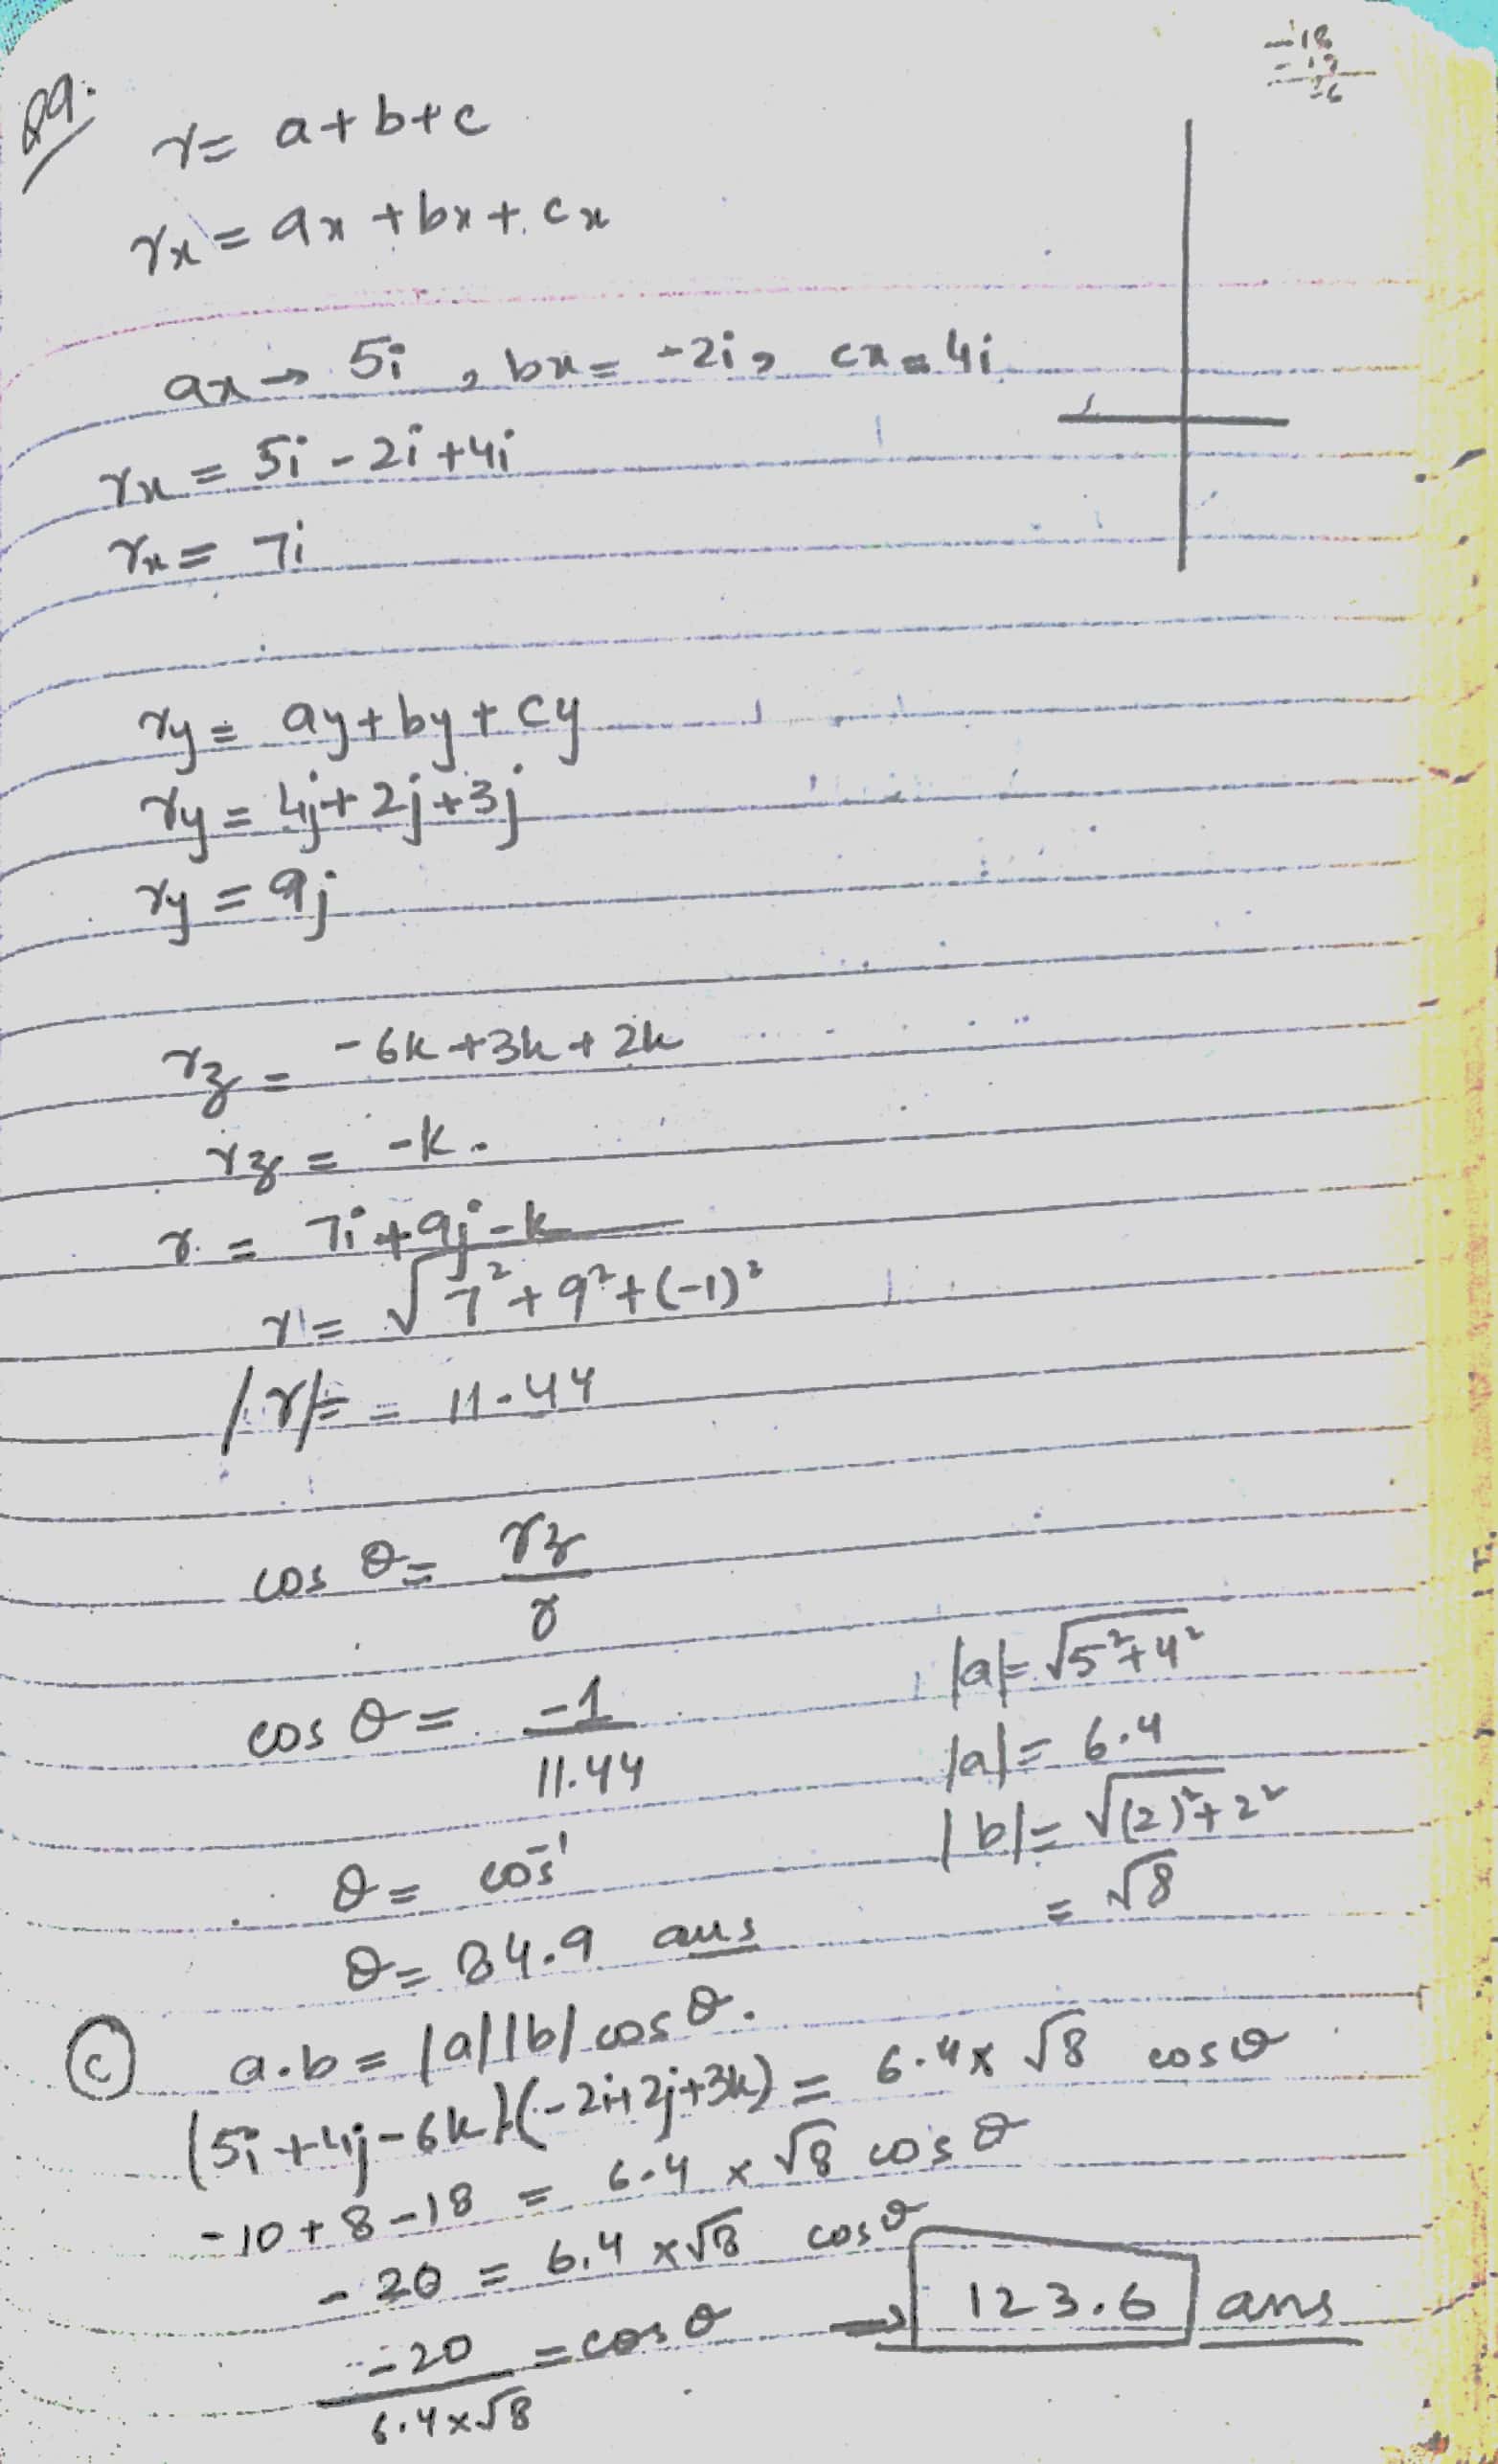 Q9.
-18
r= a+b+c
rx = ax + bx + cx
ax → 5i , bx = -2i, cx = 4i
rx = 5i - 2i + 4i
rx = 7i
ry = ay + by + cy
ry = 4j + 2j + 3j
ry = 9j
rz = -6k + 3k + 2k
rz = -k.
r = 7i + 9j - k
r = √7² + 9² + (-1)²
|r| = = 11.44
cos θ = rz/r
cos θ = -1/11.44
|a| = √5² + 4²
|a| = 6.4
|b| = √(2)² + 2²
= √8
θ = cos⁻¹
θ = 84.9 ans
(c) a.b = |a||b| cos θ.
(5i + 4j - 6k)(-2i + 2j + 3k) = 6.4 x √8 cos θ
-10 + 8 - 18 = 6.4 x √8 cos θ
-20 = 6.4 x √8 cos θ
-20/6.4x√8 = cos θ ⇒ 123.6 ans